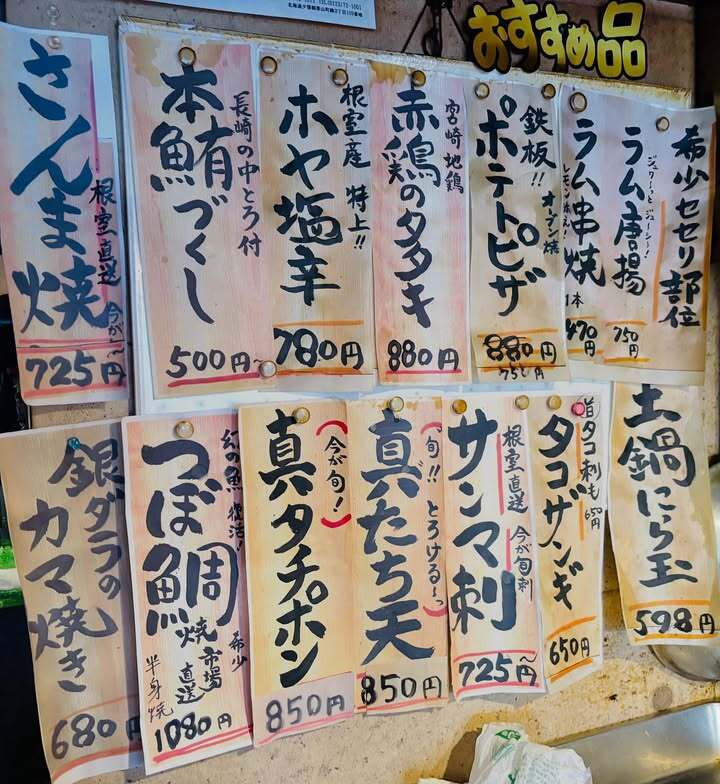 おすすめ品
希少セセリ部位
ラム唐揚
ジュワ～っとジューシー!
750円
ラム串焼
1本
470円
鉄板!!
オーブン焼
ポテトピザ
880円
宮崎地鶏
赤鶏のタタキ
880円
根室産 特上!!
ホヤ塩辛
780円
長崎の中とろ付
本鮪づくし
500円～
さんま焼
根室直送 今が～
725円
土鍋にら玉
598円
旨タコ刺も
650円
タコザンギ
650円
根室直送 今が旬刺
サンマ刺
725円～
(旬!! とろける～っ)
真たち天
850円
(今が旬!)
真タチポン
850円
幻の魚 復活!
希少
つぼ鯛焼
市場直送
半身焼
1080円
銀ダラの
カマ焼き
680円